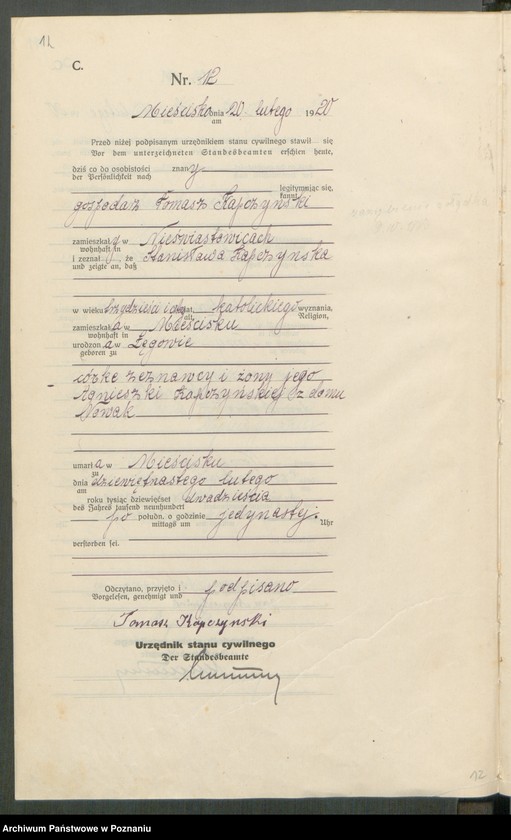 12
C.
Nr. 12
Mieścisko dnia 20. lutego 1920
am
Przed niżej podpisanym urzędnikiem stanu cywilnego stawił się
Vor dem unterzeichneten Standesbeamten erschien heute,
dziś co do osobistości znany
der Persönlichkeit nach
legitymując się,
kannt,
gospodarz Tomasz Kapczyński
zamieszkały w Nieświastowicach
wohnhaft in
i zeznał, że Stanisława Kapczyńska
und zeigte an, daß
w wieku trzydzieści lat, katolickiego wyznania,
alt, Religion,
zamieszkała w Mieścisku
wohnhaft in
urodzona w Łęgowie
geboren zu
córkę zeznawcy i żony jego
Agnieszki Kapczyńskiej z domu
Nowak
umarła w Mieścisku
zu
dnia dziewiętnastego lutego
am
roku tysiąc dziewięćset dwudziestu
des Jahres tausend neunhundert
po połudn. o godzinie jedynastej.
mittags um Uhr
verstorben sei.
Odczytano, przyjęto i podpisano
Vorgelesen, genehmigt und
Tomasz Kapczynski
Urzędnik stanu cywilnego
Der Standesbeamte
12
Archiwum Państwowe w Poznaniu